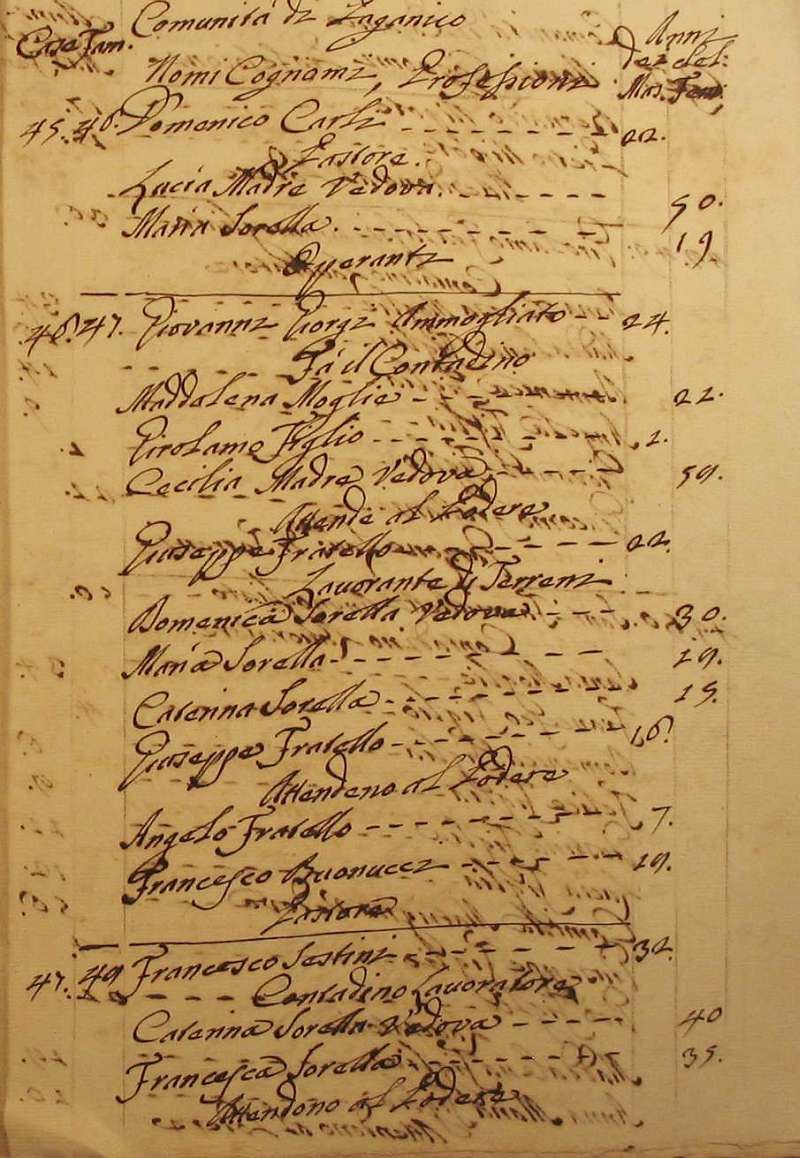 Comunitá di Zaganico
Case Fam. Anni
Nomi Cognomi, e Professioni dei del:
Mas. Fem.
45. 46. Domenico Carli 22.
Pastore.
Lucia Madre Vedova. 50.
Maria Sorella. 19
Operanti
46. 47. Giovanni Giorgi Ammogliato 24.
Fá il Contadino
Maddalena Moglie 22.
Girolamo Figlio 2.
Cecilia Madre Vedova 59.
Attende al Podere
Giuseppe Fratello 22.
Lavorante di Terreni
Domenica Sorella Vedova 30.
Maria Sorella 19.
Caterina Sorella 15.
Giuseppe Fratello 16.
Attendeno al Podere
Angelo Fratello 7.
Francesco Buonucci 19.
Pastore
47. 49 Francesco Sestini 32.
Contadino Lavoratore
Caterina Sorella Vedova 40
Francesca Sorella 35.
Attendono al Podere